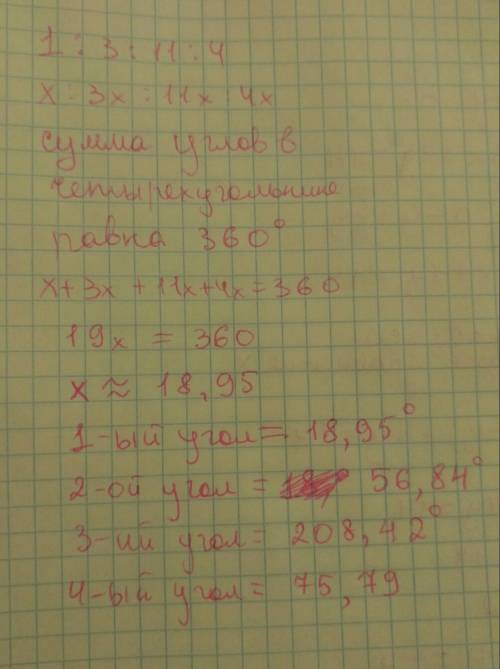 1 : 3 : 11 : 4
x : 3x : 11x : 4x
сумма углов в
четырехугольнике
равна 360°
x + 3x + 11x + 4x = 360
19x = 360
x ≈ 18,95
1-ый угол = 18,95°
2-ой угол = 56,84°
3-ий угол = 208,42°
4-ый угол = 75,79